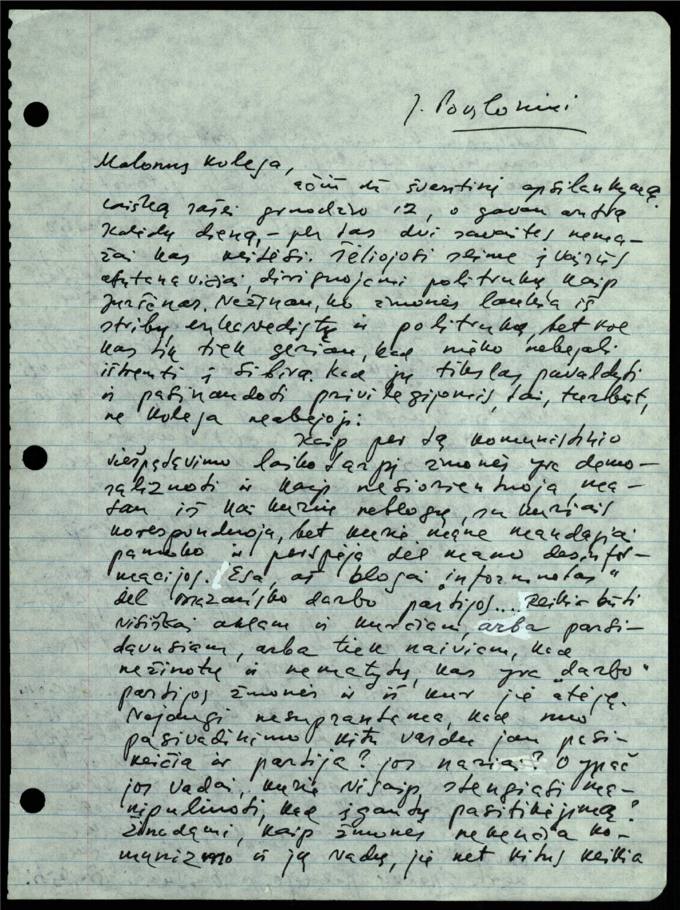 J.
Malonus kolega,
ačiū už šventinį apsilankymą.
Laišką rašei gruodžio 12, o gavau antrą
Kalėdų dieną, – per tas dvi savaites nema-
žai kas keitėsi. į
diriguojami politrukų kaip
Juršėnas. Nežinau, ko žmonės laukia iš
stribų, enkavedistų ir politrukų, bet kol
kas tik tiek geriau, kad nieko nebegali
ištremti į Sibirą. Kad jų tikslas pavaldyti
ir pasinaudoti privilegijomis, tai, turbūt,
ne kolega neabejoji.
Kaip per tą komunistinio
viešpatavimo laikotarpį žmonės yra demo-
ralizuoti ir kaip nesiorientuoja ma-
tau iš kai kurių neblogų, su kuriais
korespondavau, bet kurie mane mandagiai
pamoko ir perspėja dėl mano dezinfor-
macijos. Esą, aš blogai „informuotas“
dėl darbo partijos... Reikia būti
visiškai aklam ir kurčiam, arba parsi-
davusiam, arba tiek naiviam, kad
nežinotų ir nematytų, kas yra „darbo“
partijos žmonės ir iš kur jie atėję.
Nejaugi nesuprantama, kad nuo
pasivadinimo kitu vardu jau pasi-
keičia ir partija? Jos nariai? O ypač
jos vadai, kurie visaip stengiasi ma-
nipuliuoti, kad įgautų pasitikėjimą?
Žinodami, kaip žmonės nekenčia ko-
munizmo ir jų vadų, jie net kitus keikia